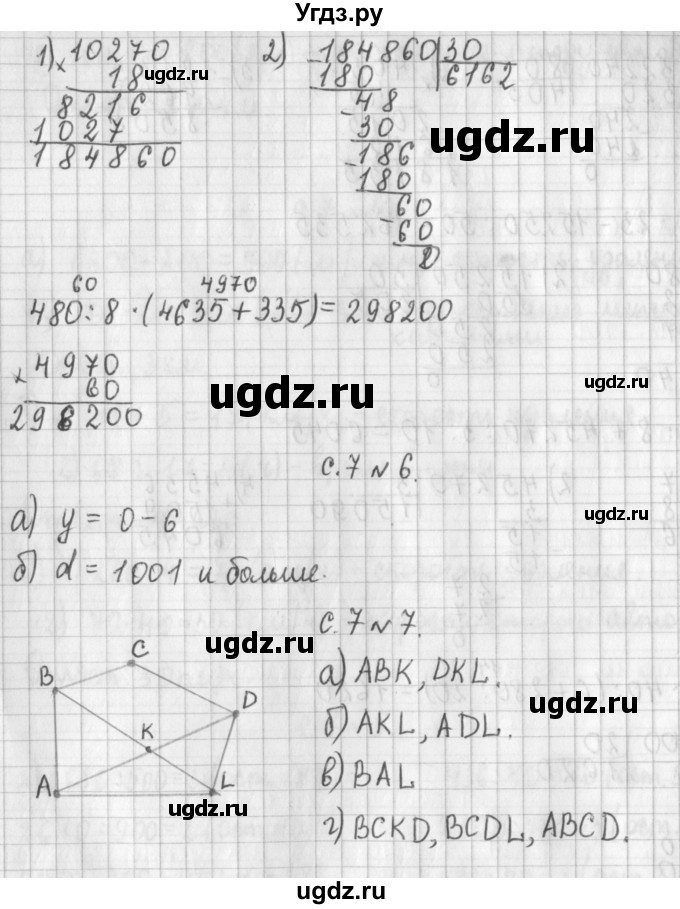 Угдз.ру
1) × 10270
18
8216
1027
184860
2) - 184860 | 30
180 6162
- 48
30
- 186
180
- 60
60
0
ugdz.ru
ugdz.ru
60 4970
480:8 · (4635+335) = 298200
× 4970
60
298200
ugdz.ru
ugdz.ru
с.7 № 6.
а) y = 0-6
б) d = 1001 и больше.
ugdz.ru
с.7 № 7.
ugdz.ru
B C D K A L
а) ABK, DKL.
б) AKL, ADL.
в) BAL
г) BCKD, BCDL, ABCD.
ugdz.ru
ugdz.ru
ugdz.ru